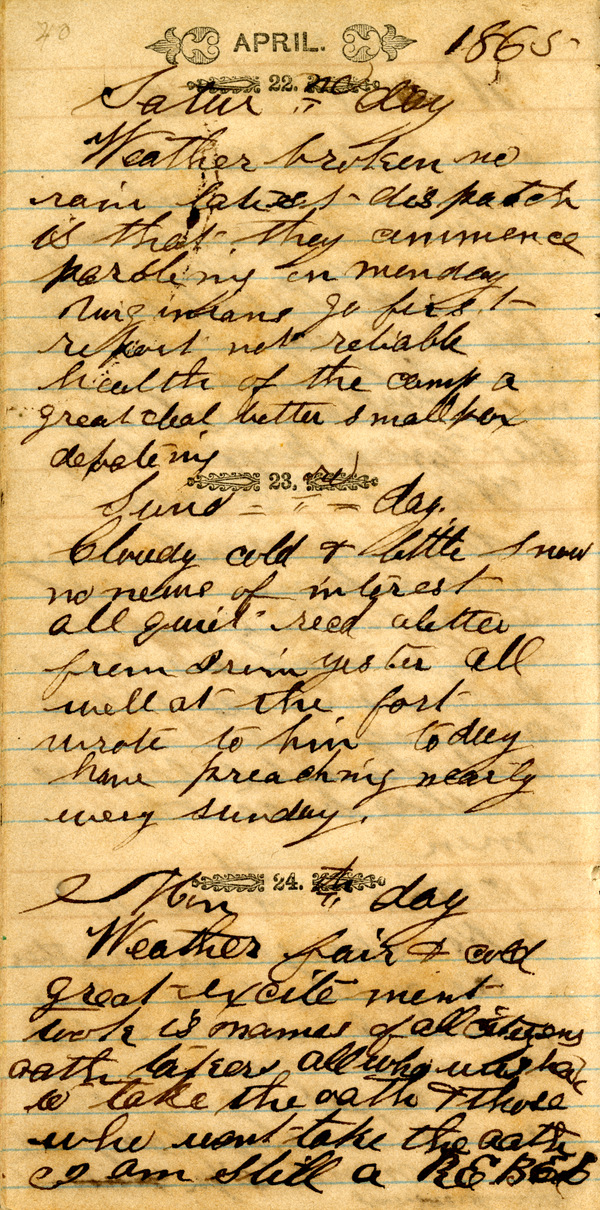 20
APRIL. 1865
22. nd
Satur " day
Weather broken no
rain latest dispatch
is that they commence
paroleing on monday
Virginians go first
report not reliable
health of the camp a
great deal better smallpox
debateing
23. rd
Sund - " - day.
Cloudy cold & little snow
no news of interest
all quiet recd a letter
from Irvin yester all
well at the fort
wrote to him today
have preaching nearly
every sunday.
24. th
Mon " day
Weather fair & cold
great excitement
took is names of all citizens
oath takers all who wish
to take the oath & those
who wont take the oath
I am still a REBEL